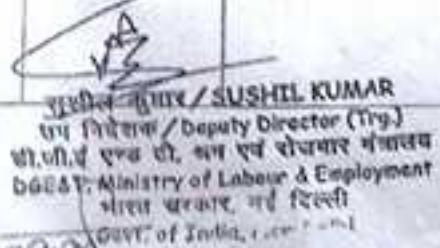 सुशील कुमार / SUSHIL KUMAR
उप निदेशक / Deputy Director (Trg.)
डी.जी.ई एण्ड टी, श्रम एवं रोजगार मंत्रालय
DGE&T, Ministry of Labour & Employment
भारत सरकार, नई दिल्ली
Govt. of India,